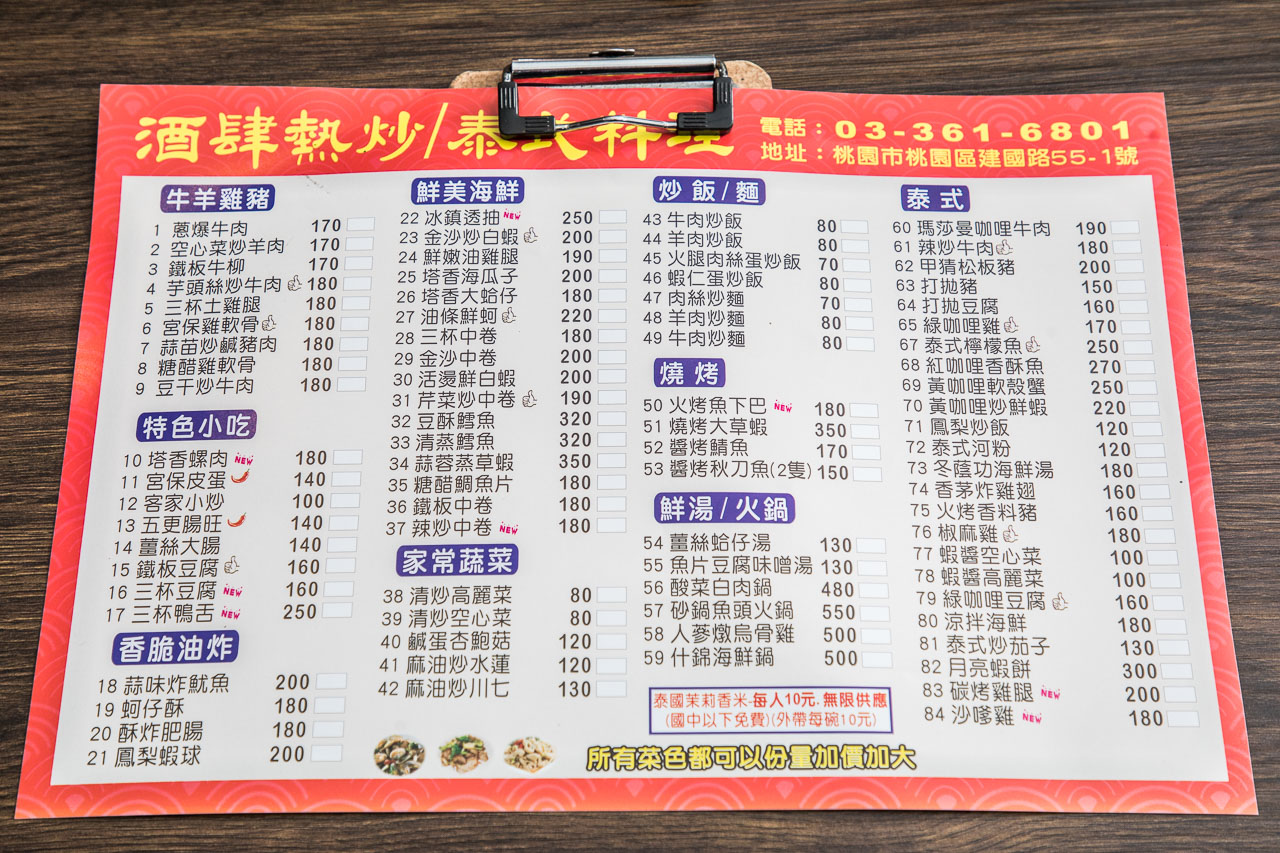 酒肆熱炒/泰式料理
電話：03-361-6801
地址：桃園市桃園區建國路55-1號
牛羊雞豬
1 蔥爆牛肉 170
2 空心菜炒羊肉 170
3 鐵板牛柳 170
4 芋頭絲炒牛肉 180
5 三杯土雞腿 180
6 宮保雞軟骨 180
7 蒜苗炒鹹豬肉 180
8 糖醋雞軟骨 180
9 豆干炒牛肉 180
特色小吃
10 塔香螺肉 NEW 180
11 宮保皮蛋 140
12 客家小炒 100
13 五更腸旺 140
14 薑絲大腸 140
15 鐵板豆腐 160
16 三杯豆腐 NEW 160
17 三杯鴨舌 NEW 250
香脆油炸
18 蒜味炸魷魚 200
19 蚵仔酥 180
20 酥炸肥腸 180
21 鳳梨蝦球 200
鮮美海鮮
22 冰鎮透抽 NEW 250
23 金沙炒白蝦 200
24 鮮嫩油雞腿 190
25 塔香海瓜子 200
26 塔香大蛤仔 180
27 油條鮮蚵 220
28 三杯中卷 180
29 金沙中卷 200
30 活燙鮮白蝦 200
31 芹菜炒中卷 190
32 豆酥鱈魚 320
33 清蒸鱈魚 320
34 蒜蓉蒸草蝦 350
35 糖醋鯛魚片 180
36 鐵板中卷 180
37 辣炒中卷 NEW 180
家常蔬菜
38 清炒高麗菜 80
39 清炒空心菜 80
40 鹹蛋杏鮑菇 120
41 麻油炒水蓮 120
42 麻油炒川七 130
炒飯/麵
43 牛肉炒飯 80
44 羊肉炒飯 80
45 火腿肉絲蛋炒飯 70
46 蝦仁蛋炒飯 80
47 肉絲炒麵 70
48 羊肉炒麵 80
49 牛肉炒麵 80
燒烤
50 火烤魚下巴 NEW 180
51 燒烤大草蝦 350
52 醬烤鯖魚 170
53 醬烤秋刀魚(2隻) 150
鮮湯/火鍋
54 薑絲蛤仔湯 130
55 魚片豆腐味噌湯 130
56 酸菜白肉鍋 480
57 砂鍋魚頭火鍋 550
58 人參燉烏骨雞 500
59 什錦海鮮鍋 500
泰國茉莉香米-每人10元.無限供應
(國中以下免費)(外帶每碗10元)
泰式
60 瑪莎曼咖哩牛肉 190
61 辣炒牛肉 180
62 甲猜松板豬 200
63 打拋豬 150
64 打拋豆腐 160
65 綠咖哩雞 170
67 泰式檸檬魚 250
68 紅咖哩香酥魚 270
69 黃咖哩軟殼蟹 250
70 黃咖哩炒鮮蝦 220
71 鳳梨炒飯 120
72 泰式河粉 120
73 冬蔭功海鮮湯 180
74 香茅炸雞翅 160
75 火烤香料豬 160
76 椒麻雞 180
77 蝦醬空心菜 100
78 蝦醬高麗菜 100
79 綠咖哩豆腐 160
80 涼拌海鮮 180
81 泰式炒茄子 130
82 月亮蝦餅 300
83 碳烤雞腿 NEW 200
84 沙嗲雞 NEW 180
所有菜色都可以份量加價加大